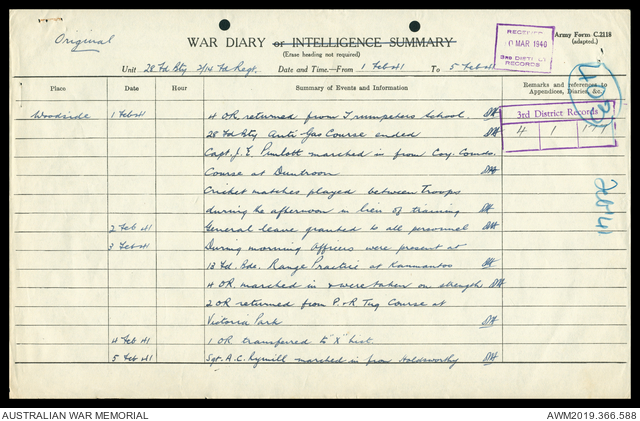 Original
WAR DIARY or INTELLIGENCE SUMMARY
(Erase heading not required)
Army Form C.2118
(adapted.)
MAR 1940
RECORDS
Unit 28 Fd Bty 2/14 Fd Regt. Date and Time—From 1 Feb 41 To 5 Feb 41
Place Date Hour Summary of Events and Information Remarks and references to
Appendices, Diaries, &c.
3rd District Records
4 1
Woodside 1 Feb 41 4 OR returned from Trumpeters School.
28 Fd Bty Anti Gas Course ended
Capt J. E. marched in from Coy. Comds.
Course at Duntroon
Cricket matches played between Troops
during the afternoon in lieu of training
2 Feb 41 General leave granted to all personnel
3 Feb 41 During morning Officers were present at
13 Fd. Bde. Range Practice at Kanmantoo
4 OR marched in & were taken on strength
2 OR returned from P. & R. Tng Course at
Victoria Park
4 Feb 41 1 OR transferred to "X" list.
5 Feb 41 Sgt. A. C. Rymill marched in from Holdsworthy
AUSTRALIAN WAR MEMORIAL AWM2019.366.588